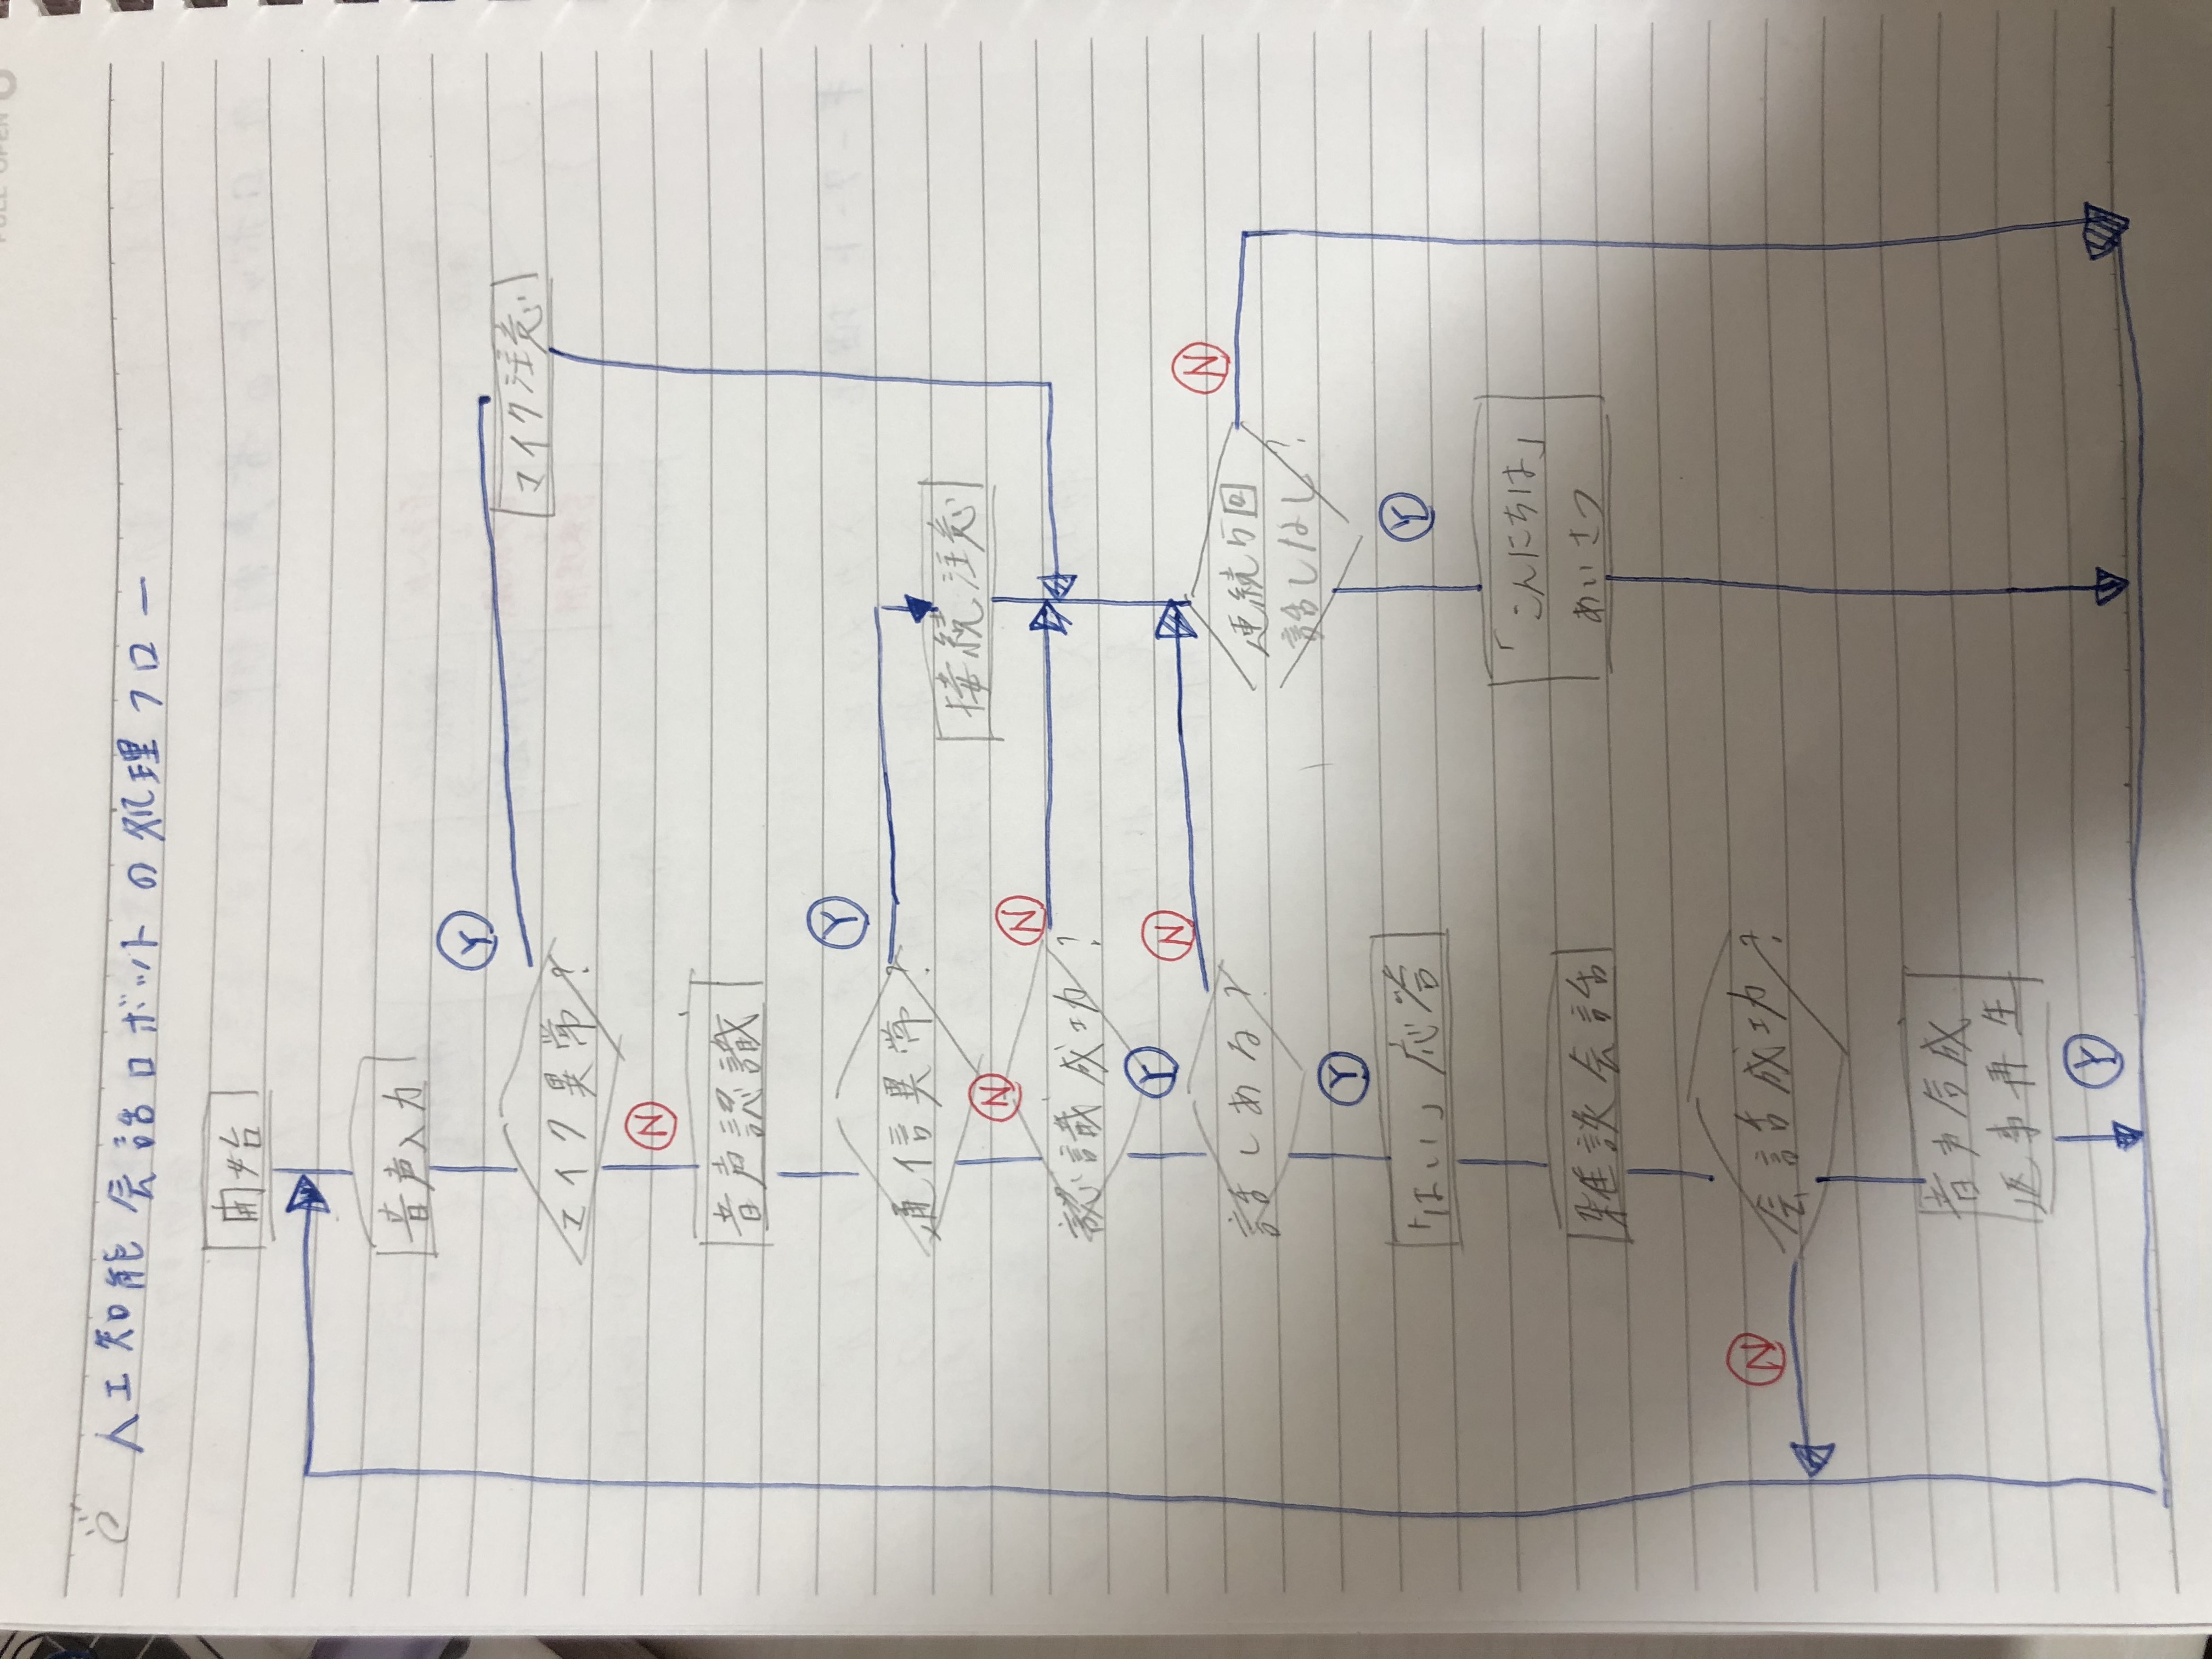 FULL OPEN
人工知能会話ロボットの処理フロー
開始
音声入力
Y
マイク異常?
マイク注意
N
音声認識
Y
通信異常?
接続注意
N
N
認識成功?
Y
N
話しある?
連続5回
話しなし?
N
Y
Y
「はい」応答
「こんにちは」
あいさつ
雑談会話
N
会話成功?
音声合成
返事再生
Y